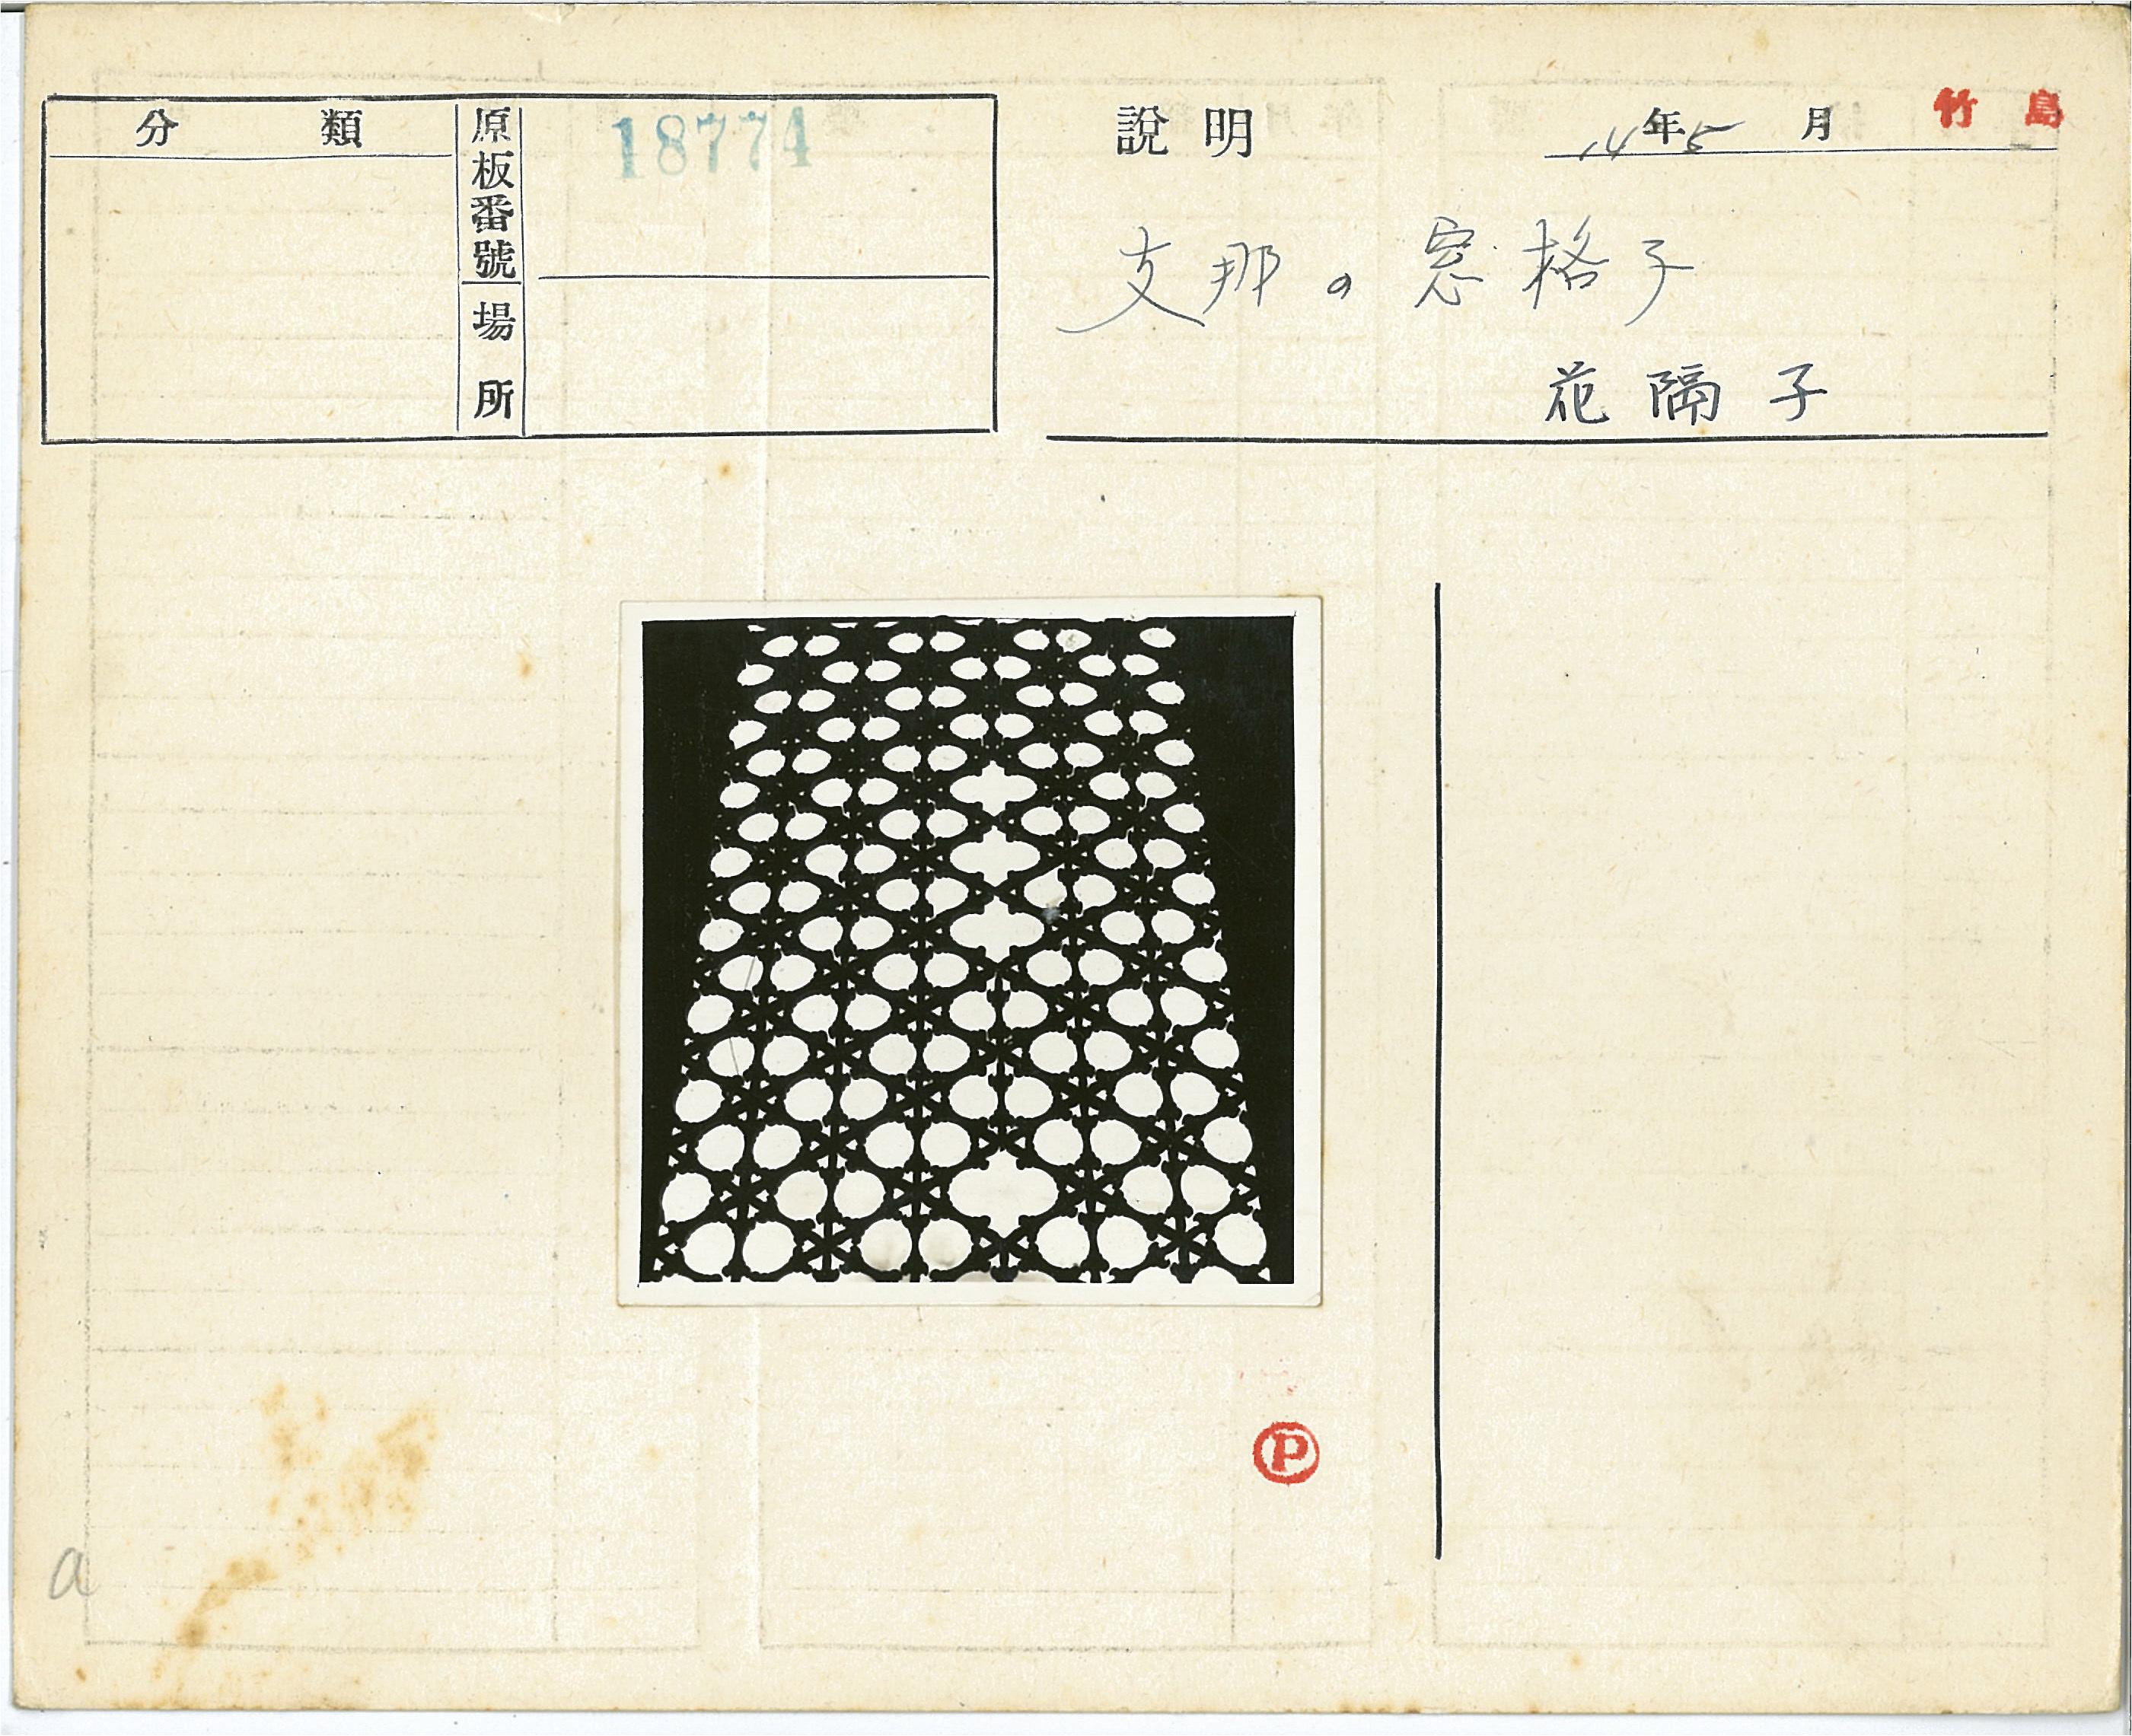 分類
原板番號
18774
場所
說明
14年5月
竹島
支那の窓格子
花隔子
P
a